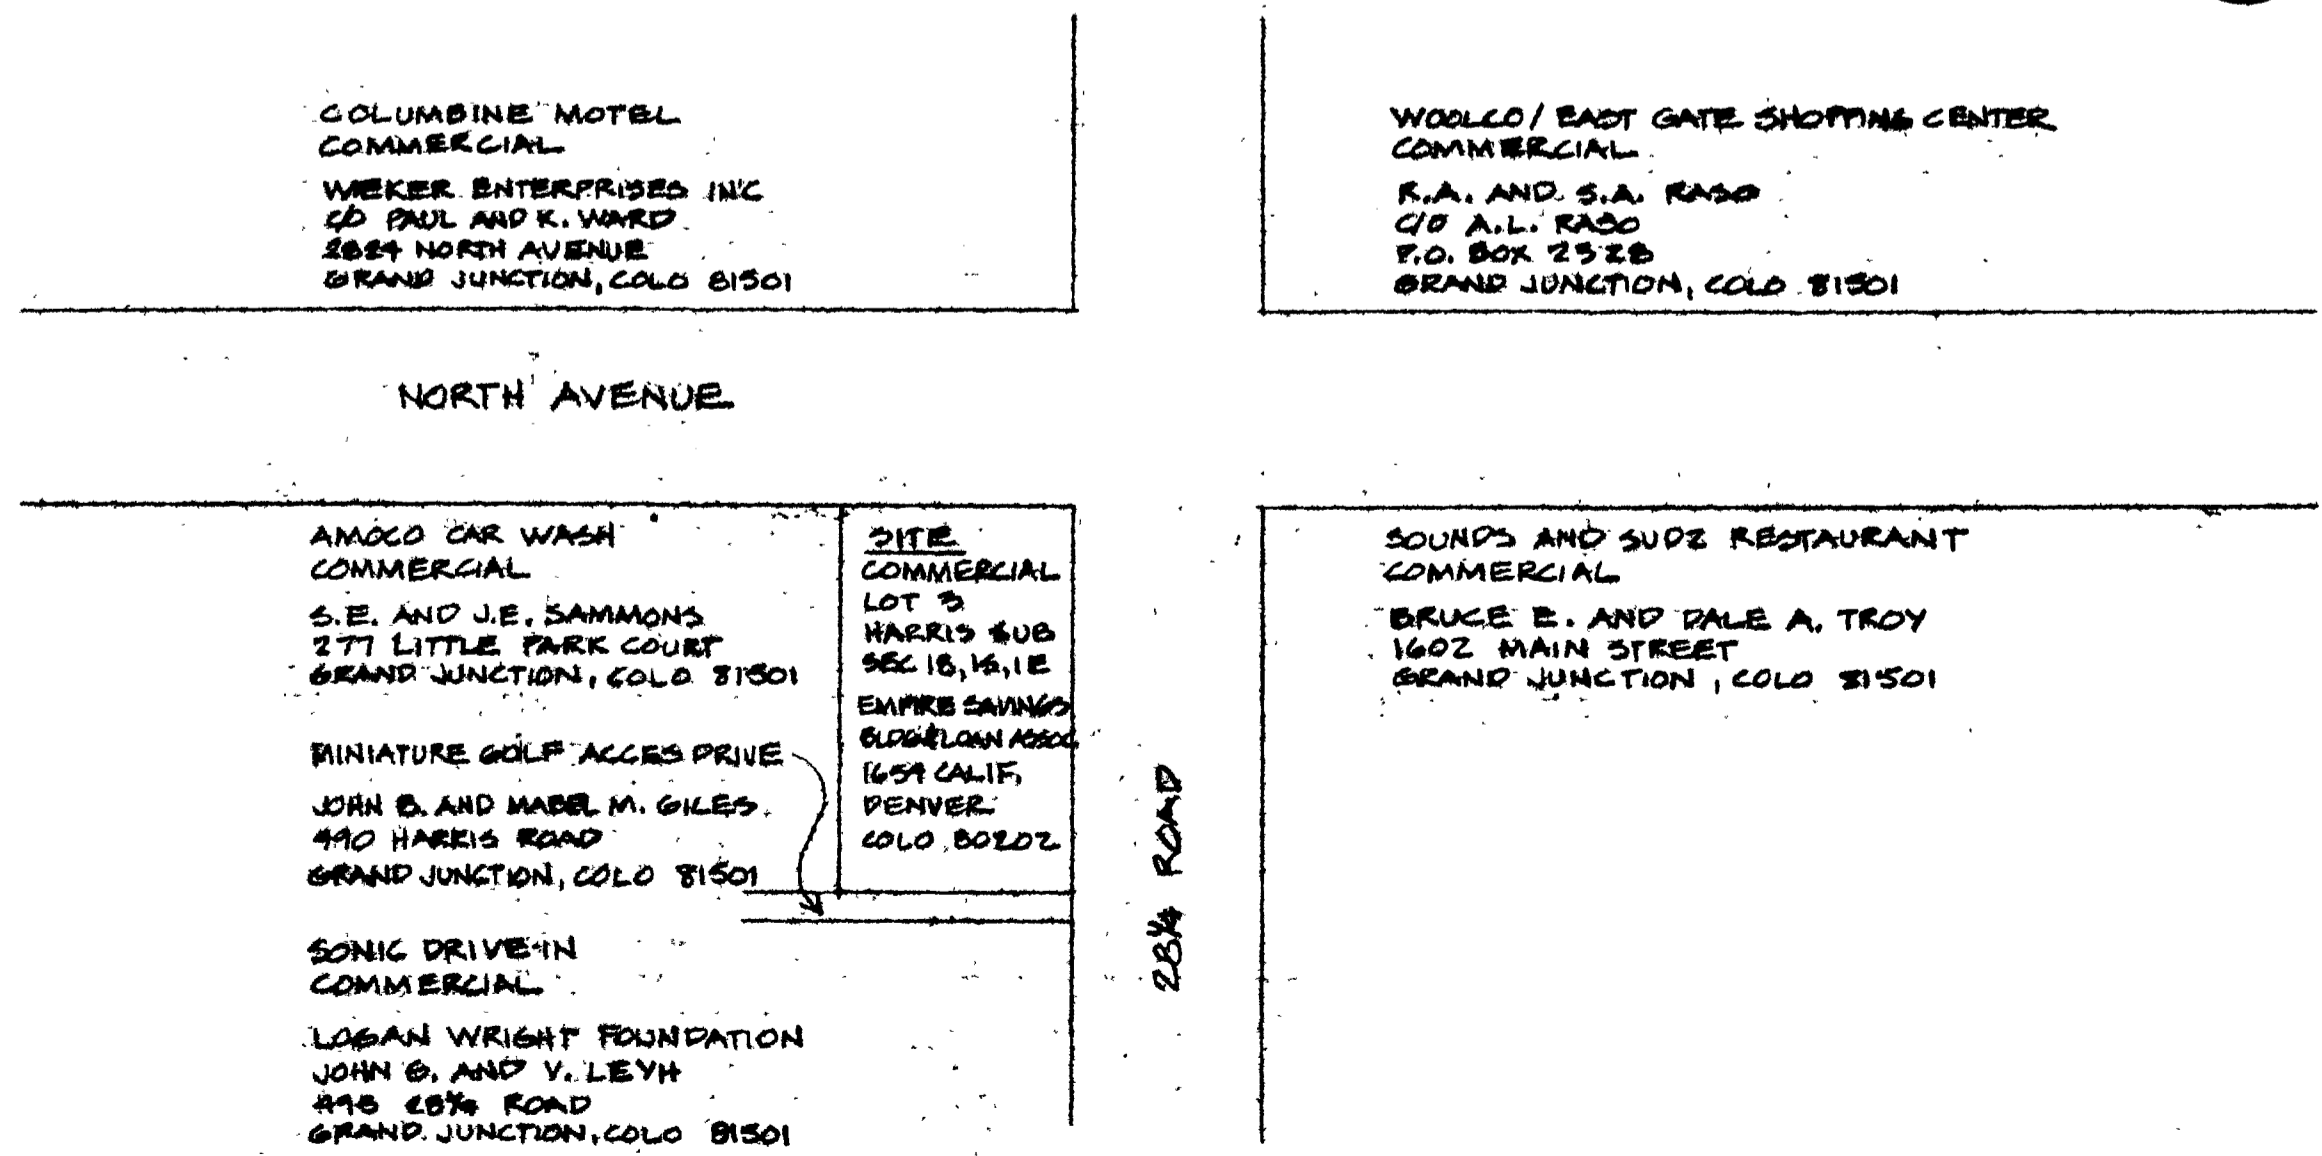 COLUMBINE MOTEL
COMMERCIAL
WIEKER ENTERPRISES INC
C/O PAUL AND K. WARD
2824 NORTH AVENUE
GRAND JUNCTION, COLO 81501
WOOLCO/ EAST GATE SHOPPING CENTER
COMMERCIAL
R.A. AND S.A. RASO
C/O A.L. RASO
P.O. BOX 2328
GRAND JUNCTION, COLO 81501
NORTH AVENUE
AMOCO CAR WASH
COMMERCIAL
S.E. AND J.E. SAMMONS
277 LITTLE PARK COURT
GRAND JUNCTION, COLO 81501
MINIATURE GOLF ACCES DRIVE
JOHN B. AND MABEL M. GILES
490 HARRIS ROAD
GRAND JUNCTION, COLO 81501
SONIC DRIVE-IN
COMMERCIAL
LOGAN WRIGHT FOUNDATION
JOHN G. AND V. LEYH
498 28¼ ROAD
GRAND JUNCTION, COLO 81501
SITE
COMMERCIAL
LOT 3
HARRIS SUB
SEC 18, 1S, 1E
EMPIRE SAVINGS
BLDG & LOAN ASSOC.
1654 CALIF,
DENVER
COLO 80202
28¼ ROAD
SOUNDS AND SUDZ RESTAURANT
COMMERCIAL
BRUCE E. AND DALE A. TROY
1602 MAIN STREET
GRAND JUNCTION, COLO 81501